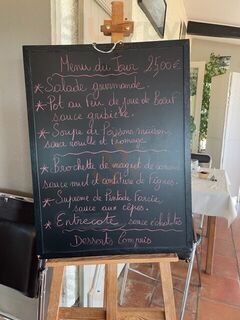 Menu du Jour 25,00€
* Salade gourmande.
* Pot au Feu de joue de Bœuf
sauce gribiche
* Soupe de Poisson maison
sauce rouille et fromage
* Brochette de magret de canard
sauce miel et confiture de Figues.
* Suprême de Pintade Farcie
sauce aux cèpes.
* Entrecôte sauce échalotes
Desserts Compris